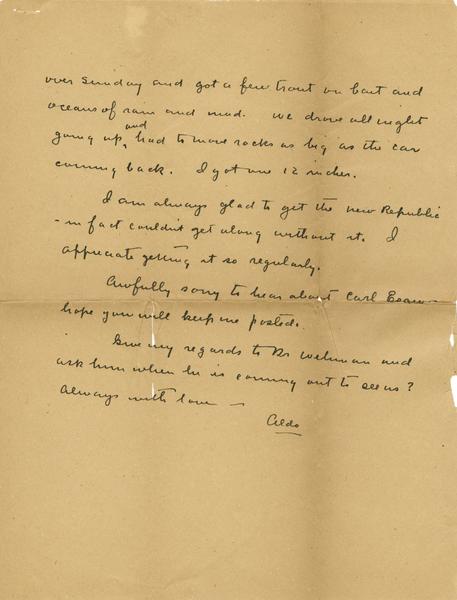 over Sunday and got a few trout on bait and
oceans of rain and mud. We drove all night
going up, and had to move rocks as big as the car
coming back. I got one 12 inches.
I am always glad to get the New Republic
- in fact couldn't get along without it. I
appreciate getting it so regularly.
Awfully sorry to hear about Carl
hope you will keep me posted.
Give my regards to Dr and
ask him when he is coming out to see us?
Always with love -
Aldo